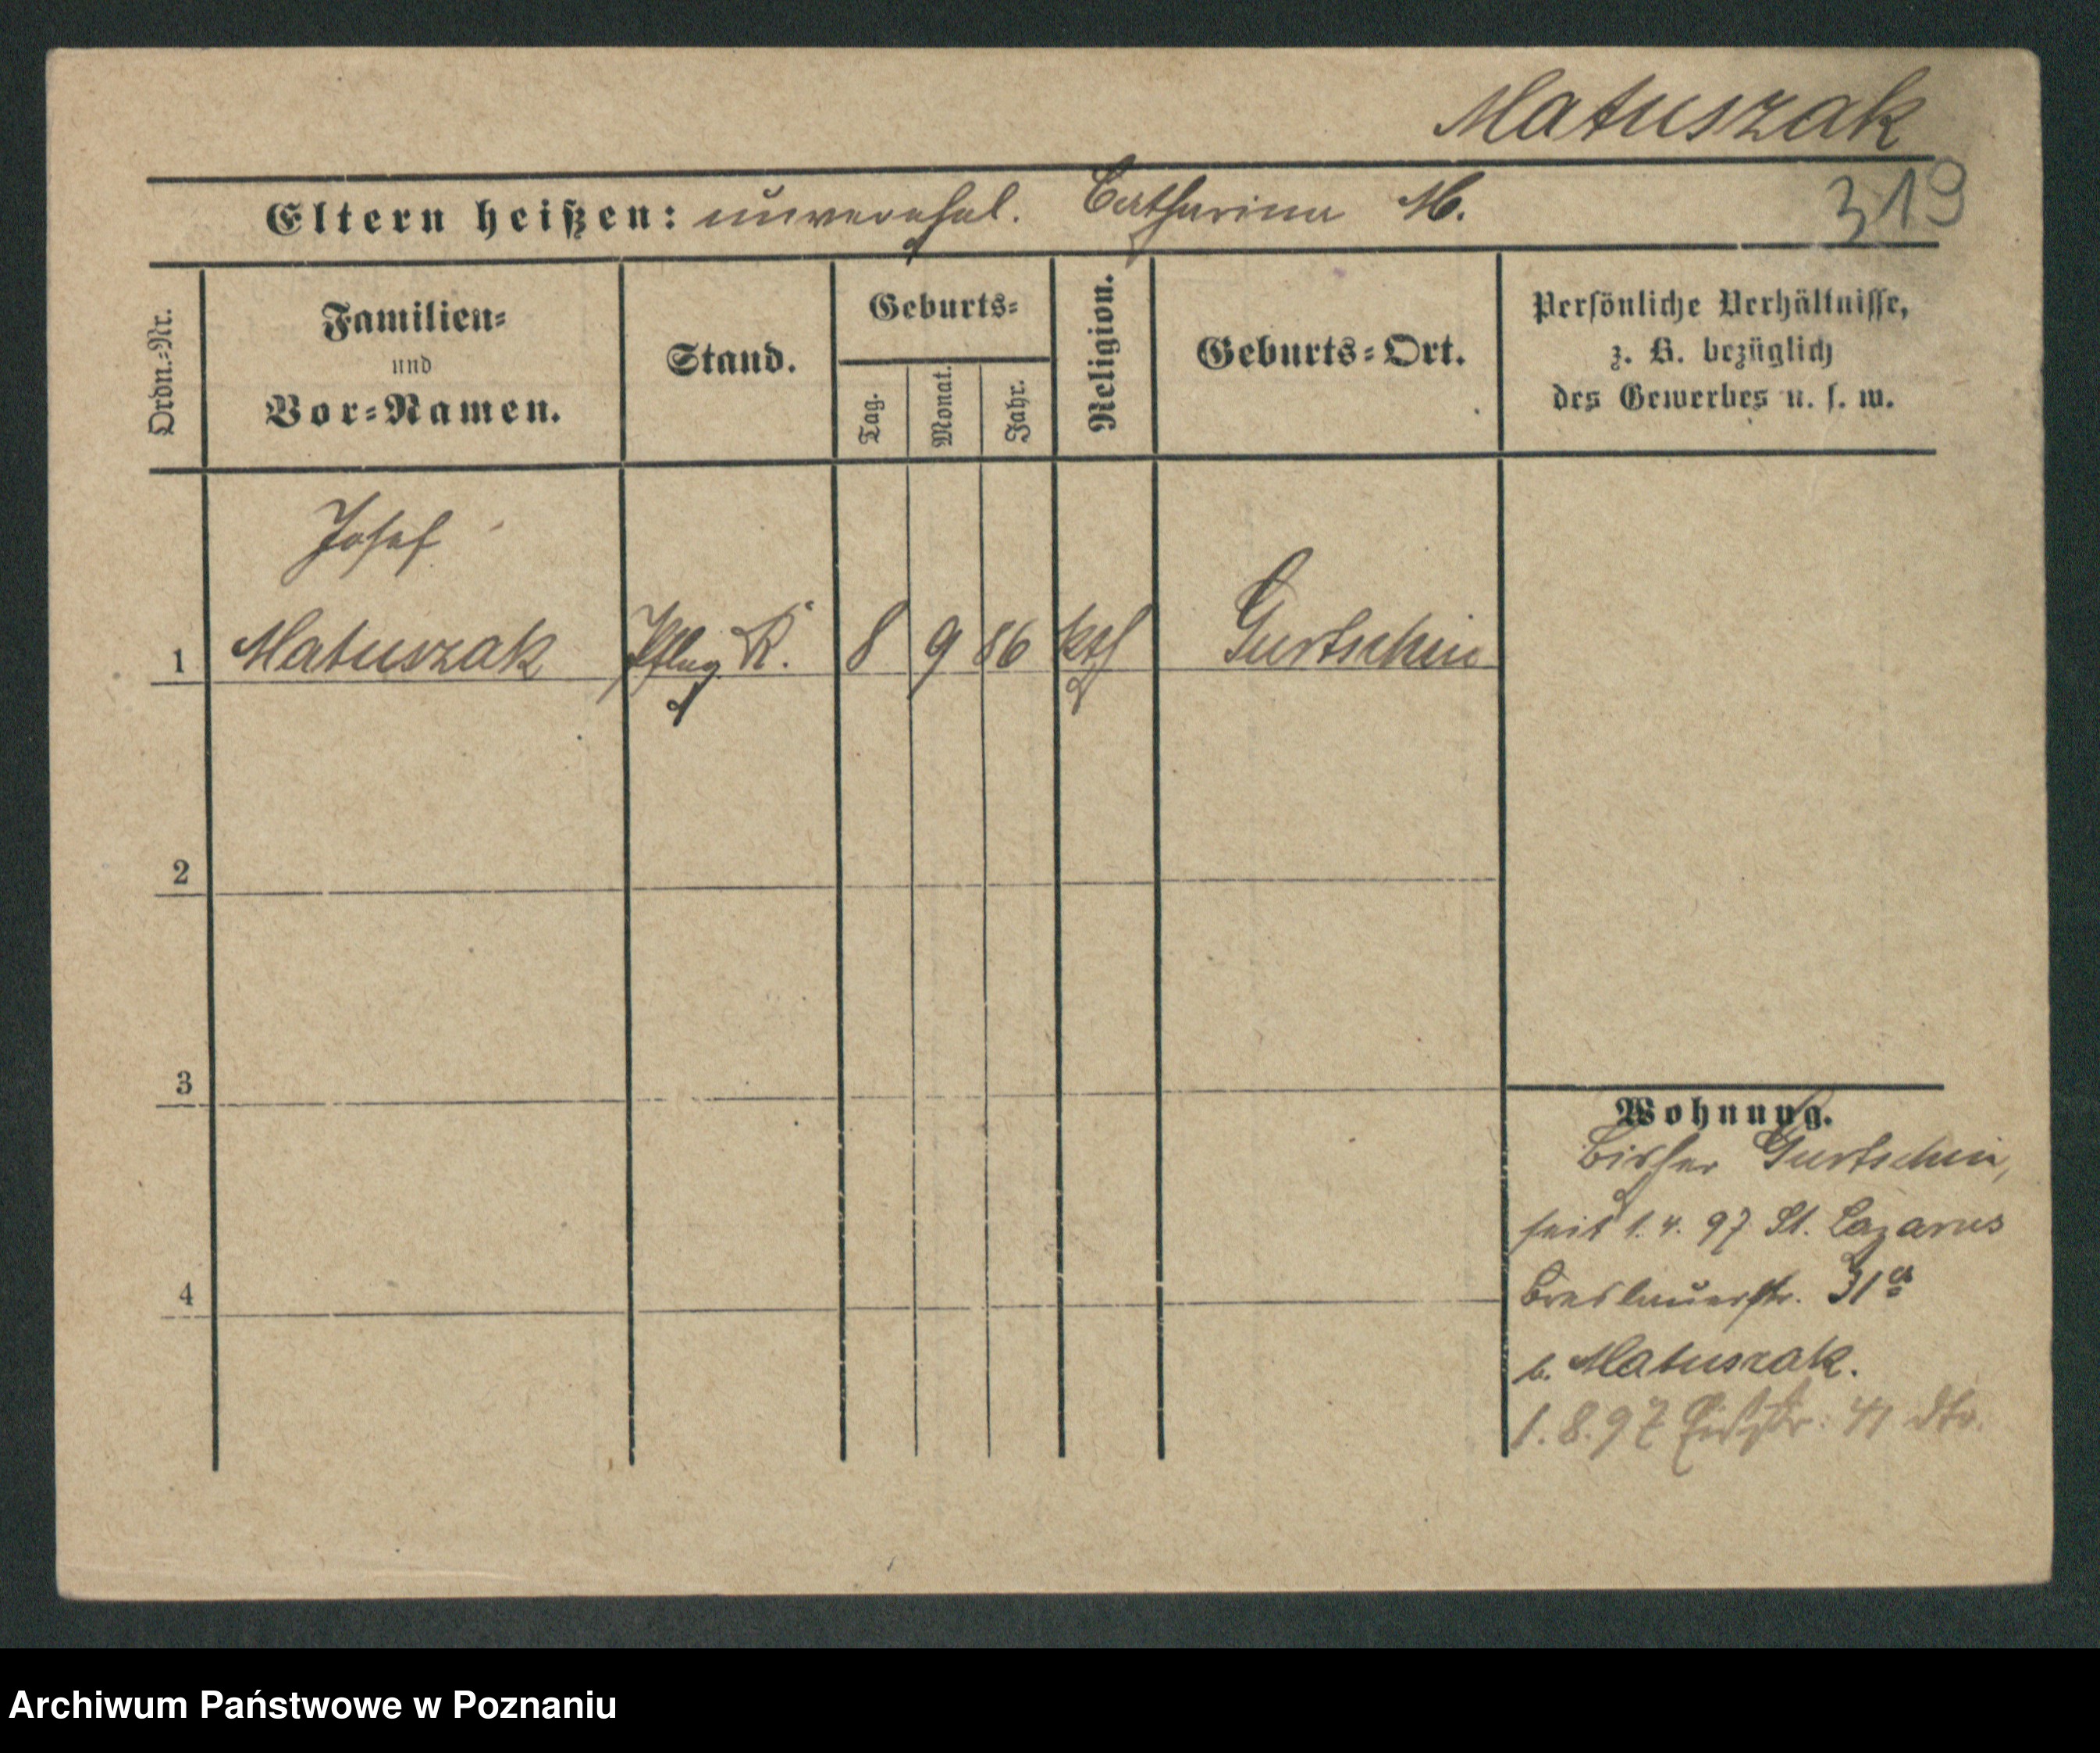 Matuszak
319
Eltern heißen: unverehel. Catharina M.
Ordn.-Nr.
Familien-
und
Vor-Namen.
Stand.
Geburts-
Tag.
Monat.
Jahr.
Religion.
Geburts-Ort.
Persönliche Verhältnisse,
z. B. bezüglich
des Gewerbes u. s. w.
Josef
1 Matuszak Pfleg. K. 8 9 86 kth Gurtschin
2
3
4
Wohnung.
Bisher Gurtschin,
seit 1.4.97 St. Lazarus
Breslauerstr. 31a
b. Matuszak.
1.8.97 41 dto.
Archiwum Państwowe w Poznaniu